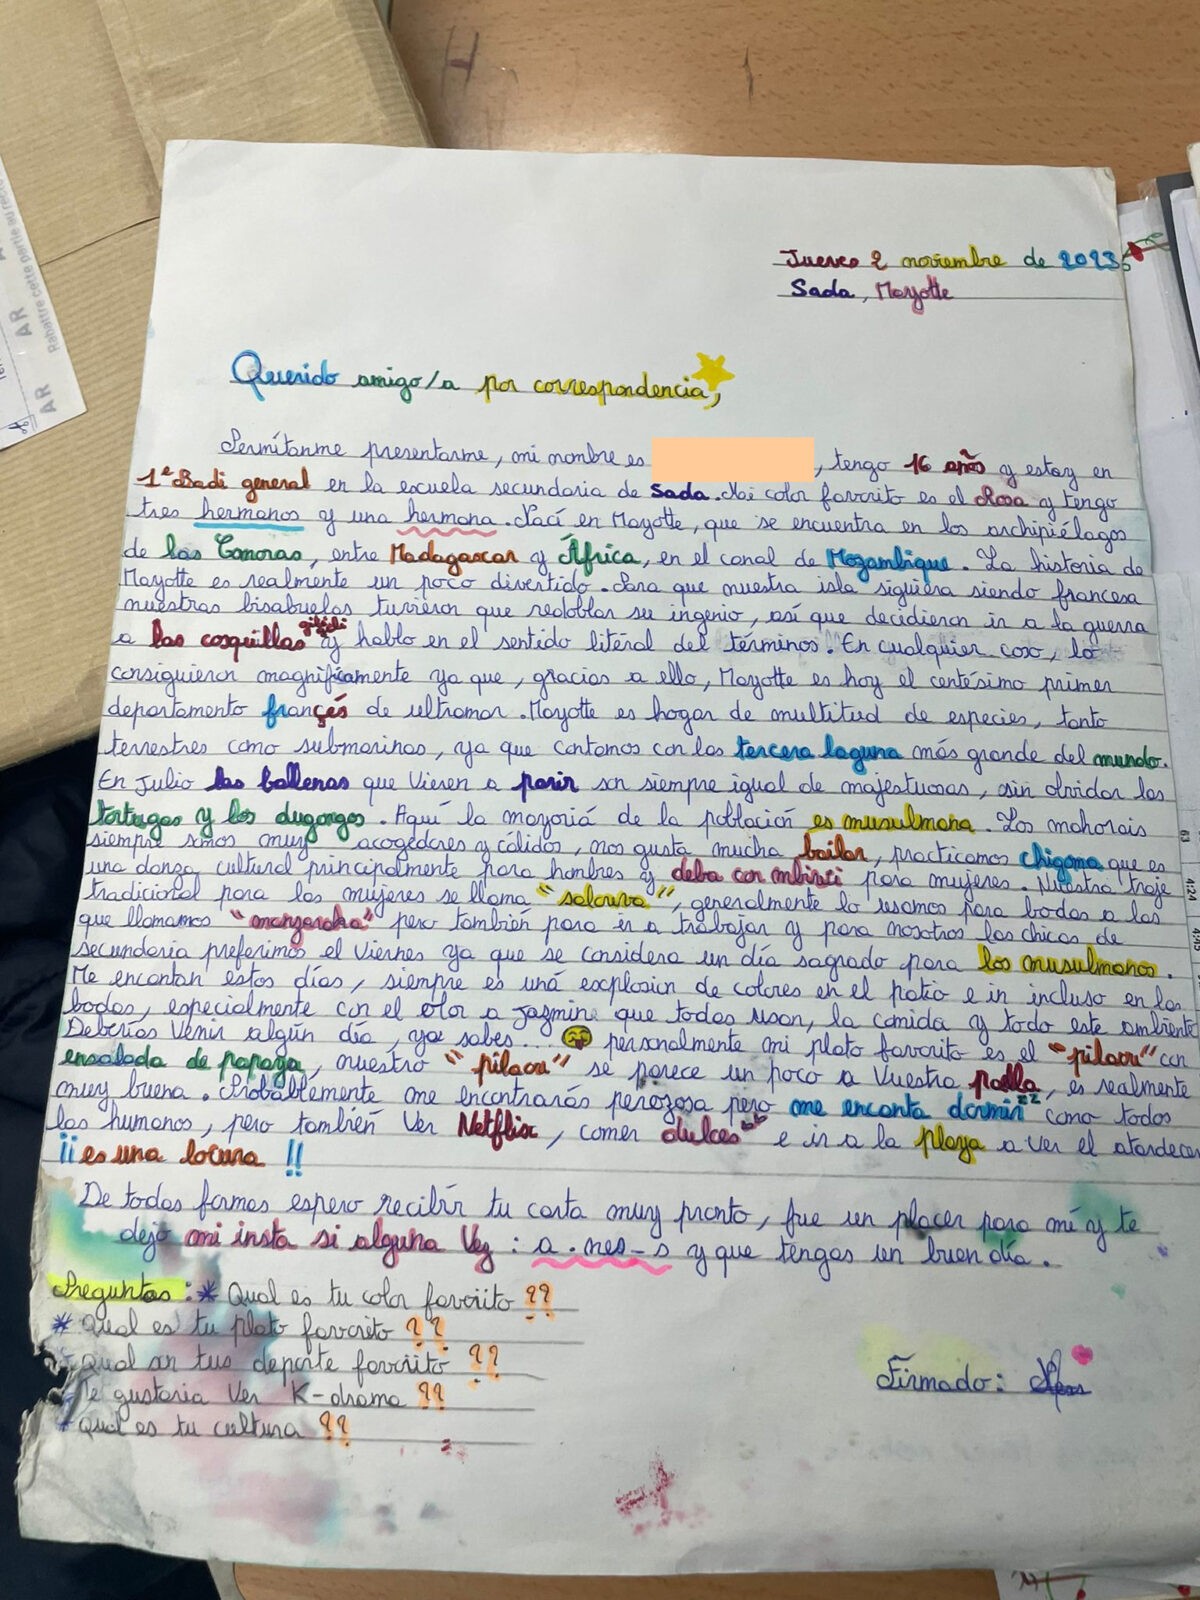 Jueves 2 noviembre de 2023
Sada, Mayotte
Querido amigo/a por correspondencia,
Permítanme presentarme, mi nombre es , tengo 16 años y estoy en
1e Badi general en la escuela secundaria de Sada. Mi color favorito es el Rosa y tengo
tres hermanos y una hermana. Nací en Mayotte, que se encuentra en los archipiélagos
de las Comoras, entre Madagascar y África, en el canal de Mozambique. La historia de
Mayotte es realmente un poco divertido. Para que nuestra isla siguiera siendo francesa
nuestras bisabuelas tuvieron que redoblar su ingenio, así que decidieron ir a la guerra
a las cosquillas y hablo en el sentido literal del términos. En cualquier caso, lo
consiguieron magníficamente ya que, gracias a ello, Mayotte es hoy el centésimo primer
departamento françés de ultramar. Mayotte es hogar de multitud de especies, tanto
terrestres como submarinas, ya que contamos con las tercera laguna más grande del mundo.
En Julio las ballenas que vienen a parir son siempre igual de majestuosas, sin olvidar las
tortugas y los dugongos. Aquí la mayoriá de la población es musulmana. Los mahorais
siempre somos muy acogedores y cálidos, nos gusta mucha bailar, practicamos chigoma que es
una danza cultural principalmente para hombres y deba con mbiwi para mujeres. Nuestra traje
tradicional para las mujeres se llama "salouva", generalmente lo usamos para bodas a las
que llamamos "manzaraka" pero también para ir a trabajar y para nosotros las chicas de
secundaria preferimos el Viernes ya que se considera un día sagrado para los musulmanos.
Me encantan estos días, siempre es uná explosion de colores en el patio e in incluso en las
bodas, especialmente con el olor a Jazmine que todas usan, la comida y todo este ambiente
Deberías Venir algún día, ya sabes... personalmente mi plato favorito es el "pilaou" con
ensalada de papaya, nuestro "pilaou" se parece un poco a Vuestra paella, es realmente
muy buena. Probablemente me encontrarás perezosa pero me encanta dormir zz como todos
los humanos, pero también Ver Netflix, comer dulces e ir a la playa a ver el atardecer
¡¡ es una locura !!
De todas formas espero recibir tu carta muy pronto, fue un placer para mí y te
dejo mi insta si alguna Vez : a.nes_s y que tengas un buen día.
Preguntas : * Qual es tu color favorito ??
* Qual es tu plato favorito ??
* Qual son tus deporte favoriito ??
* Te gustaria Ver K-drama ??
* Qual es tu cultura ??
Firmado :
AR
AR
AR
Rabattre cette partie au
63
4:24
4:45